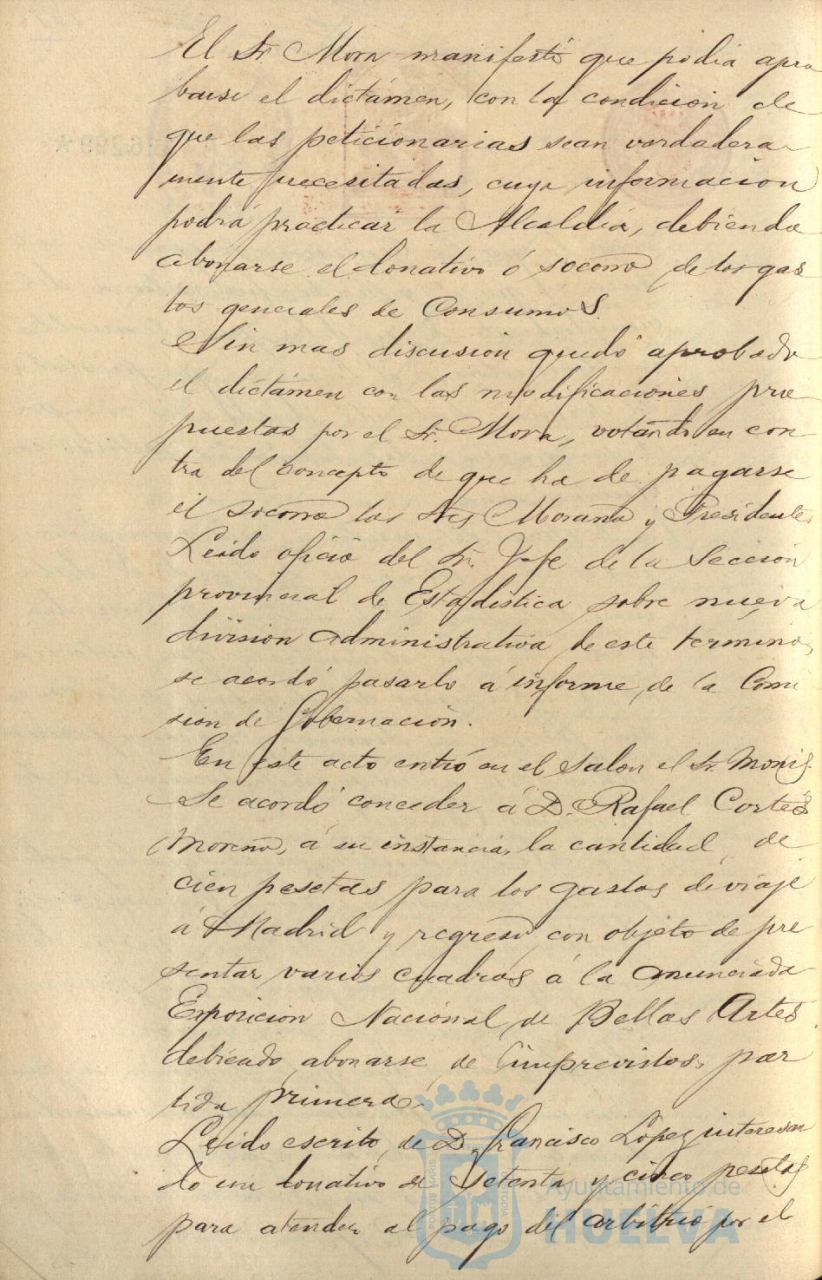 El Sr Mora manifestó que podia apro
barse el dictámen, con la condicion de
que las peticionarias sean verdadera-
mente necesitadas, cuya informacion
podrá practicar la Alcaldia, debiendo
abonarse el donativo ó socorro de los gas
tos generales de Consumos.
Sin mas discusion quedó aprobado
el dictámen con las modificaciones pro
puestas por el Sr. Mora, votando en con-
tra del concepto de que ha de pagarse
el socorro los Sres Moraña y Presidente.
Leido oficio del Sr. Jefe de la Seccion
provincial de Estadistica sobre nueva
division administrativa de este término,
se acordó pasarlo á informe de la Comi
sion de Gobernacion.
En este acto entró en el salon el Sr.
Se acordó conceder á D. Rafael Cortés
Moreno, á su instancia, la cantidad de
cien pesetas para los gastos de viaje
á Madrid y regreso, con objeto de pre
sentar varios cuadros á la anunciada
Exposicion Nacional de Bellas Artes
debiendo abonarse de Imprevistos, par
tida primera.
Leido escrito de D. Francisco Lopez interesan
do un donativo de setenta y cinco pesetas
para atender al pago del arbitrio por el
Ayuntamiento de
HUELVA